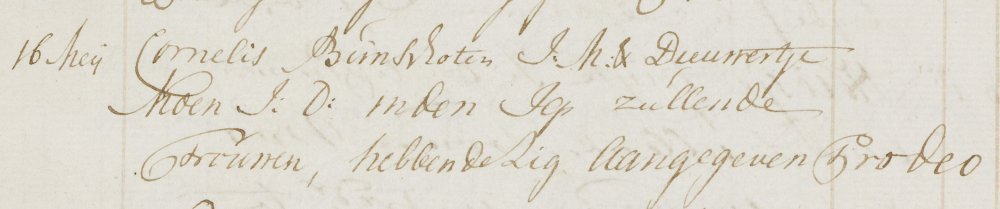 16 Meij Cornelis Bunschoten J: M: & Dieuwertje
Moen J: D: in den Jlp zullende
Trouwen, hebbende Zig Aangegeven Pro deo